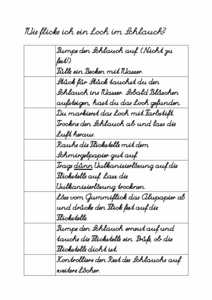 Wie flicke ich ein Loch im Schlauch?
Pumpe den Schlauch auf. (Nicht zu
fest!)
Fülle ein Becken mit Wasser.
Stück für Stück tauchst du den
Schlauch ins Wasser. Sobald Bläschen
aufsteigen, hast du das Loch gefunden.
Du markierst das Loch mit Farbstift.
Trockne den Schlauch ab und lass die
Luft heraus.
Rauhe die Flickstelle mit dem
Schmirgelpapier gut auf.
Trage dünn Vulkanisierlösung auf die
Flickstelle auf. Lass die
Vulkanisierlösung trocknen.
Löse vom Gummiflick das Alupapier ab
und drücke den Flick fest auf die
Flickstelle.
Pumpe den Schlauch erneut auf und
tauche die Flickstelle ein. Prüfe, ob die
Flickstelle dicht ist.
Kontrolliere den Rest des Schlauchs auf
weitere Löcher.